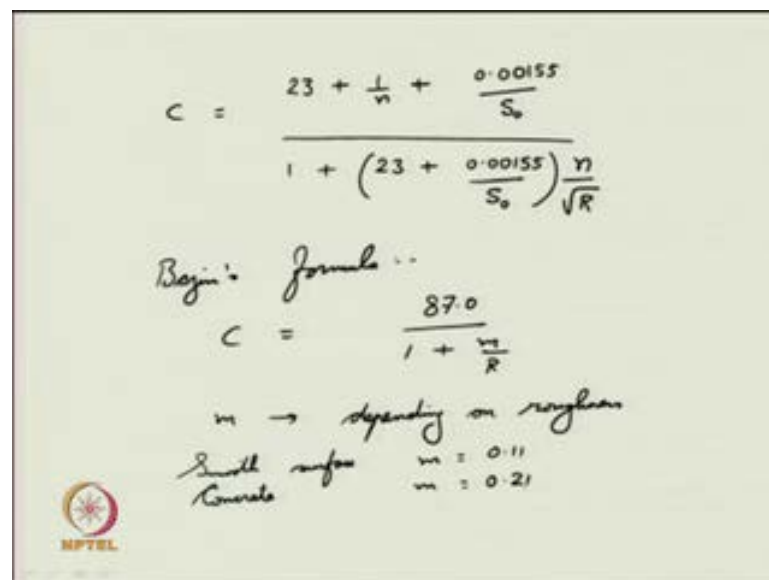 C = (23 + 1/n + 0.00155/S₀) / (1 + (23 + 0.00155/S₀) n/√R)
Bazin's formula :-
C = 87.0 / (1 + m/R)
m → depending on roughness
Smooth surface m = 0.11
Concrete m = 0.21
NPTEL